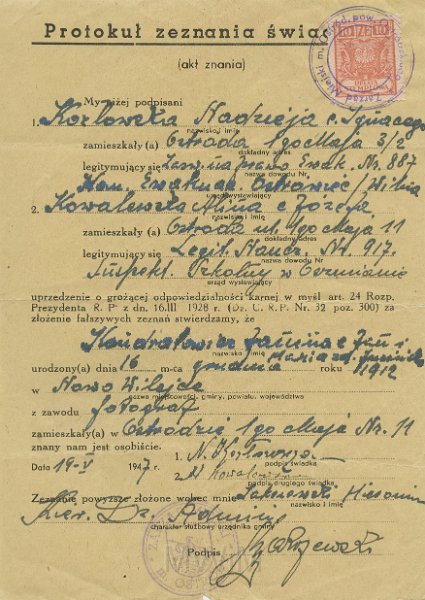 Protokuł zeznania świad
(akt znania)
My niżej podpisani
1. Kozłowska Nadzieja c. Ignacego
nazwisko i imię
zamieszkały(a) Ostróda 1go Maja 3/2
dokładny adres
legitymujący się prawo Ewak. Nr. 887
nazwa dowodu Nr
Kom. Ewakuac.
urząd wystawiający
2. Kowalewska Alina c Józefa
nazwisko i imię
zamieszkały(a) Ostróda ul. 1go Maja 11
dokładny adres
legitymujący się Legit. Naucz. Nr. 917.
nazwa dowodu Nr
Inspekt. Szkolny w Oszmianie
urząd wystawiający
uprzedzenie o grożącej odpowiedzialności karnej w myśl art. 24 Rozp.
Prezydenta R. P. z dn. 16.III 1928 r. (Dz. U. R. P. Nr. 32 poz. 300) za
złożenie fałszywych zeznań stwierdzamy, że
Kondratowicz Janina c Jana i
nazwisko i imię
Maria
urodzony(a) dnia 16 m-ca grudnia roku 1912
w Nowo Wilejce
nazwa miejscowości, gminy, powiatu, województwa
z zawodu fotograf
zamieszkały(a) w Ostródzie 1go Maja Nr. 11
znany nam jest osobiście.
1. N. Kozłowska
podpis świadka
Data 19-V 1947 r.
2.
podpis drugiego świadka
Zeznanie powyższe złożone wobec mnie Hieronim
nazwisko i imię
Kier. Dz. Admin.
charakter służbowy urzędnika gminy
Podpis